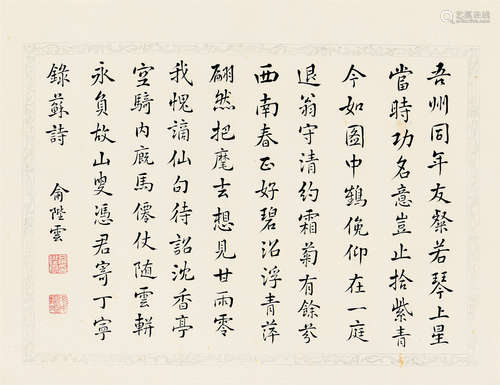 吾州同年友粲若琴上星
當時功名意豈止拾紫青
今如圖中鶴俛仰在一庭
退翁守清約霜菊有餘芬
西南春正好碧沼浮青萍
翩然把麾去想見甘雨零
我愧謫仙句待詔沈香亭
空騎內廐馬僊仗隨雲軿
永負故山叟憑君寄丁寧
錄蘇詩 俞陛雲